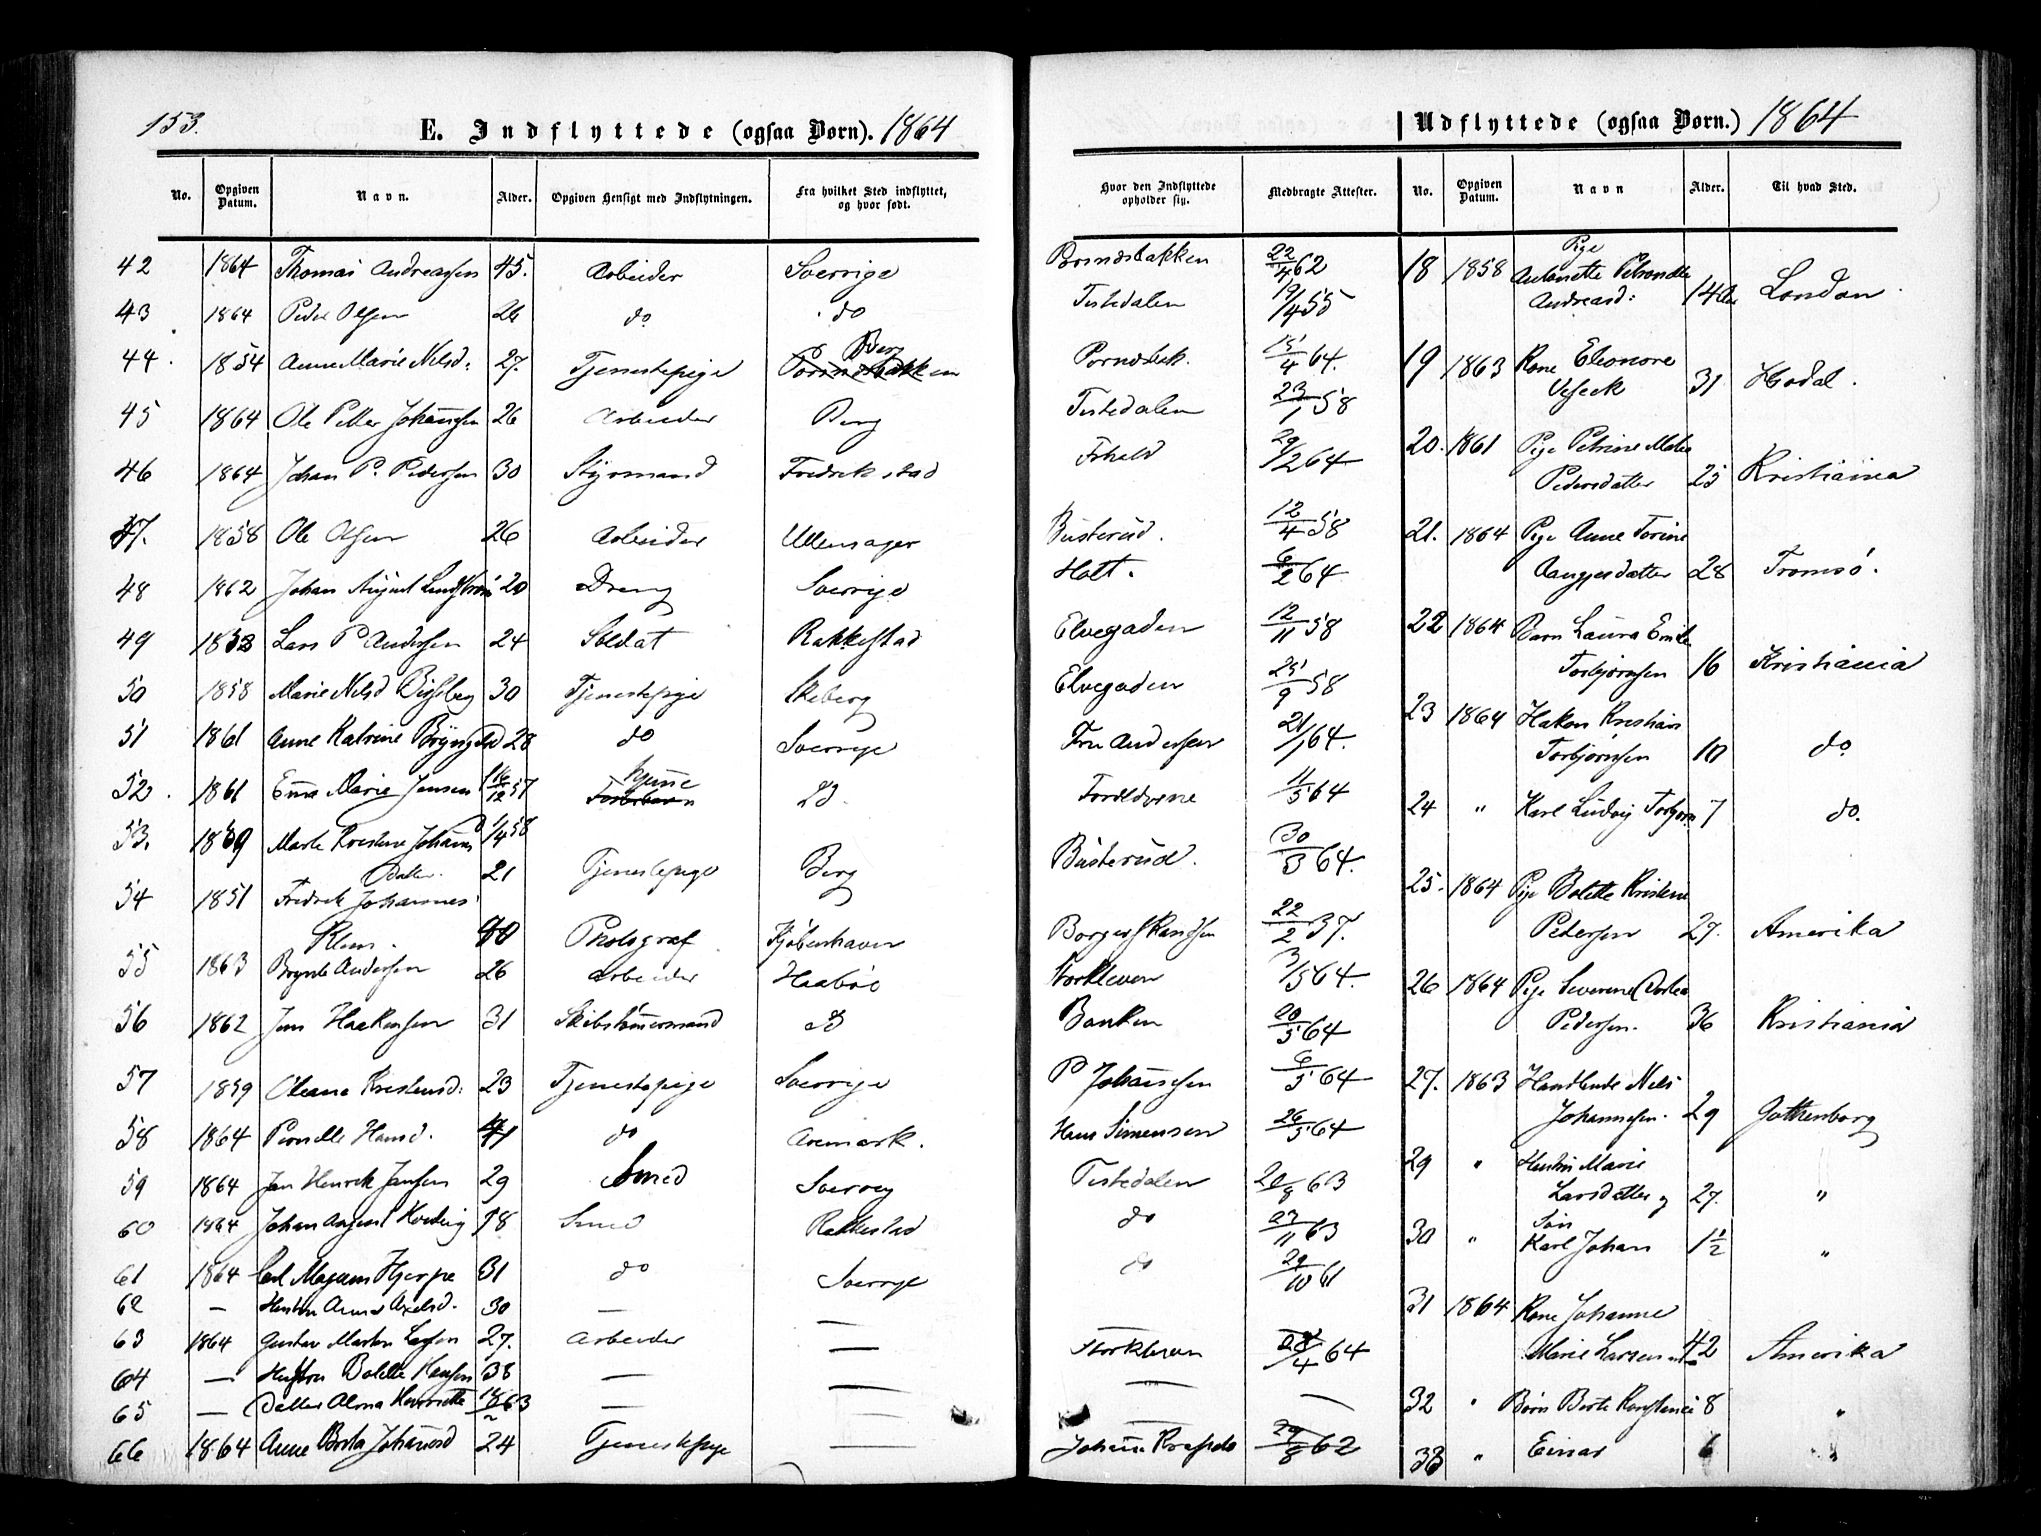 153.
E. Indflyttede (ogsaa Børn). 1864
No. Opgiven Datum. Navn. Alder. Opgiven Hensigt med Indflytningen. Fra hvilket Sted indflyttet, og hvor født.
42 1864 Thomas Andreassen 45. Arbeider Sverrige
43 1864 Peder Olsen 26 do do
44. 1854 Anne Marie Nelsd: 27. Tjenestepige Berg
45 1864 Ole Petter Johansen 26 Arbeider Berg
46 1864 Johan P. Pedersen 30 Styrmand Fredrikstad
47. 1858 Ole Olsen 26 Arbeider Ullensager
48 1862 Johan August 20 Dreng Sverrige
49 Lars P Andersen 24 Soldat Rakkestad
50 1858 Marie Nelsd 30 Tjenestepige Skeberg
51 1861 Anne Katrine 28 do Sverrige
52. 1861 Emma Marie Jensen 16/12 57 hjemme
53. Marte Kristine Johannes 1/4 58
Datter. 21 Tjenestepige Berg
54 1851 Fredrik Johannes
Klem. 40 Photograf Kjøbenhavn
55 1863 Brynte Andersen 26 Arbeider Haabøl
56 1862 Jens Haakensen 31 Skibstømermand
57 1859 Oleane Kristensd: 23 Tjenestepige Sverrige
58 1864 Pernille Hansd. 41 do Aremark.
59 1864 Jan Henrik Jansen 29 Smed Sverrig
60 1864 Johan August 18 Smed Rakkestad
61 1864 Carl Magnus Hjerpe 31 do Sverrge
62 — Hustru Anna Axelsd. 30 —
63 1864 Gustav Larsen 27. Arbeider —
64 — Hustru Bolette Hansen 38 — —
65 — Datter Alma Henriette 63 — —
66 1864 Anne Brita Johansd 24 Tjenestepige —
Hvor den Indflyttede opholder sig. Medbragte Attester.
22/4 62
Tistedalen 19/4 55
15/4 64.
Tistedalen 23/1 58
Frhald 29/2 64
Busterud. 12/4 58
Holt. 6/2 64
Elvegaden 12/11 58
Elvegaden 25/9 58
Fru Andersen 21/1 64.
Forældrene 11/5 64
Busterud. 30/3 64.
22/2 37.
Storkleven 3/5 64.
Banken 20/5 64
P Johannesen 6/5 64
Hans Simensen 26/5 64
Tistedalen 20/8 63
do 23/11 63
do 29/10 61
—
Storkleven 28/4 64
— —
—
Johan 29/8 62
Udflyttede (ogsaa Børn.) 1864
No. Opgiven Datum. Navn Alder. Til hvad Sted.
Pige
18 1858 Antonette Petronelle
Andreasd: London
19 1863 Kone Eleonore
31 Hodal.
20. 1861 Pige Petrine Malea
Pedersdatter 25 Kristiania
21. 1864 Pige Anne Torine
28 Tromsø.
22 1864 Barn Laura Emilie
Torbjørnsen 16 Kristiania
23 1864 Hakon Kristian
Torbjørnsen 10 do
24 " Karl Ludvig Torbjørn 7 do.
25. 1864 Pige Bolette Kristine
Pedersen 27. Amerika
26 1864 Pige Severine Dortea
Pedersen. 36 Kristiania
27. 1863 Handlende Nels
Johannesen. 29 Gottenborg
29 " Hustru Marie
Larsdatter og 27. "
Søn
30 " Karl Johan 1 1/2 "
31 1864 Kone Johanne
Marie Larsen 42 Amerika
32 " Børn Berte 8 "
33 " Einar 6 "